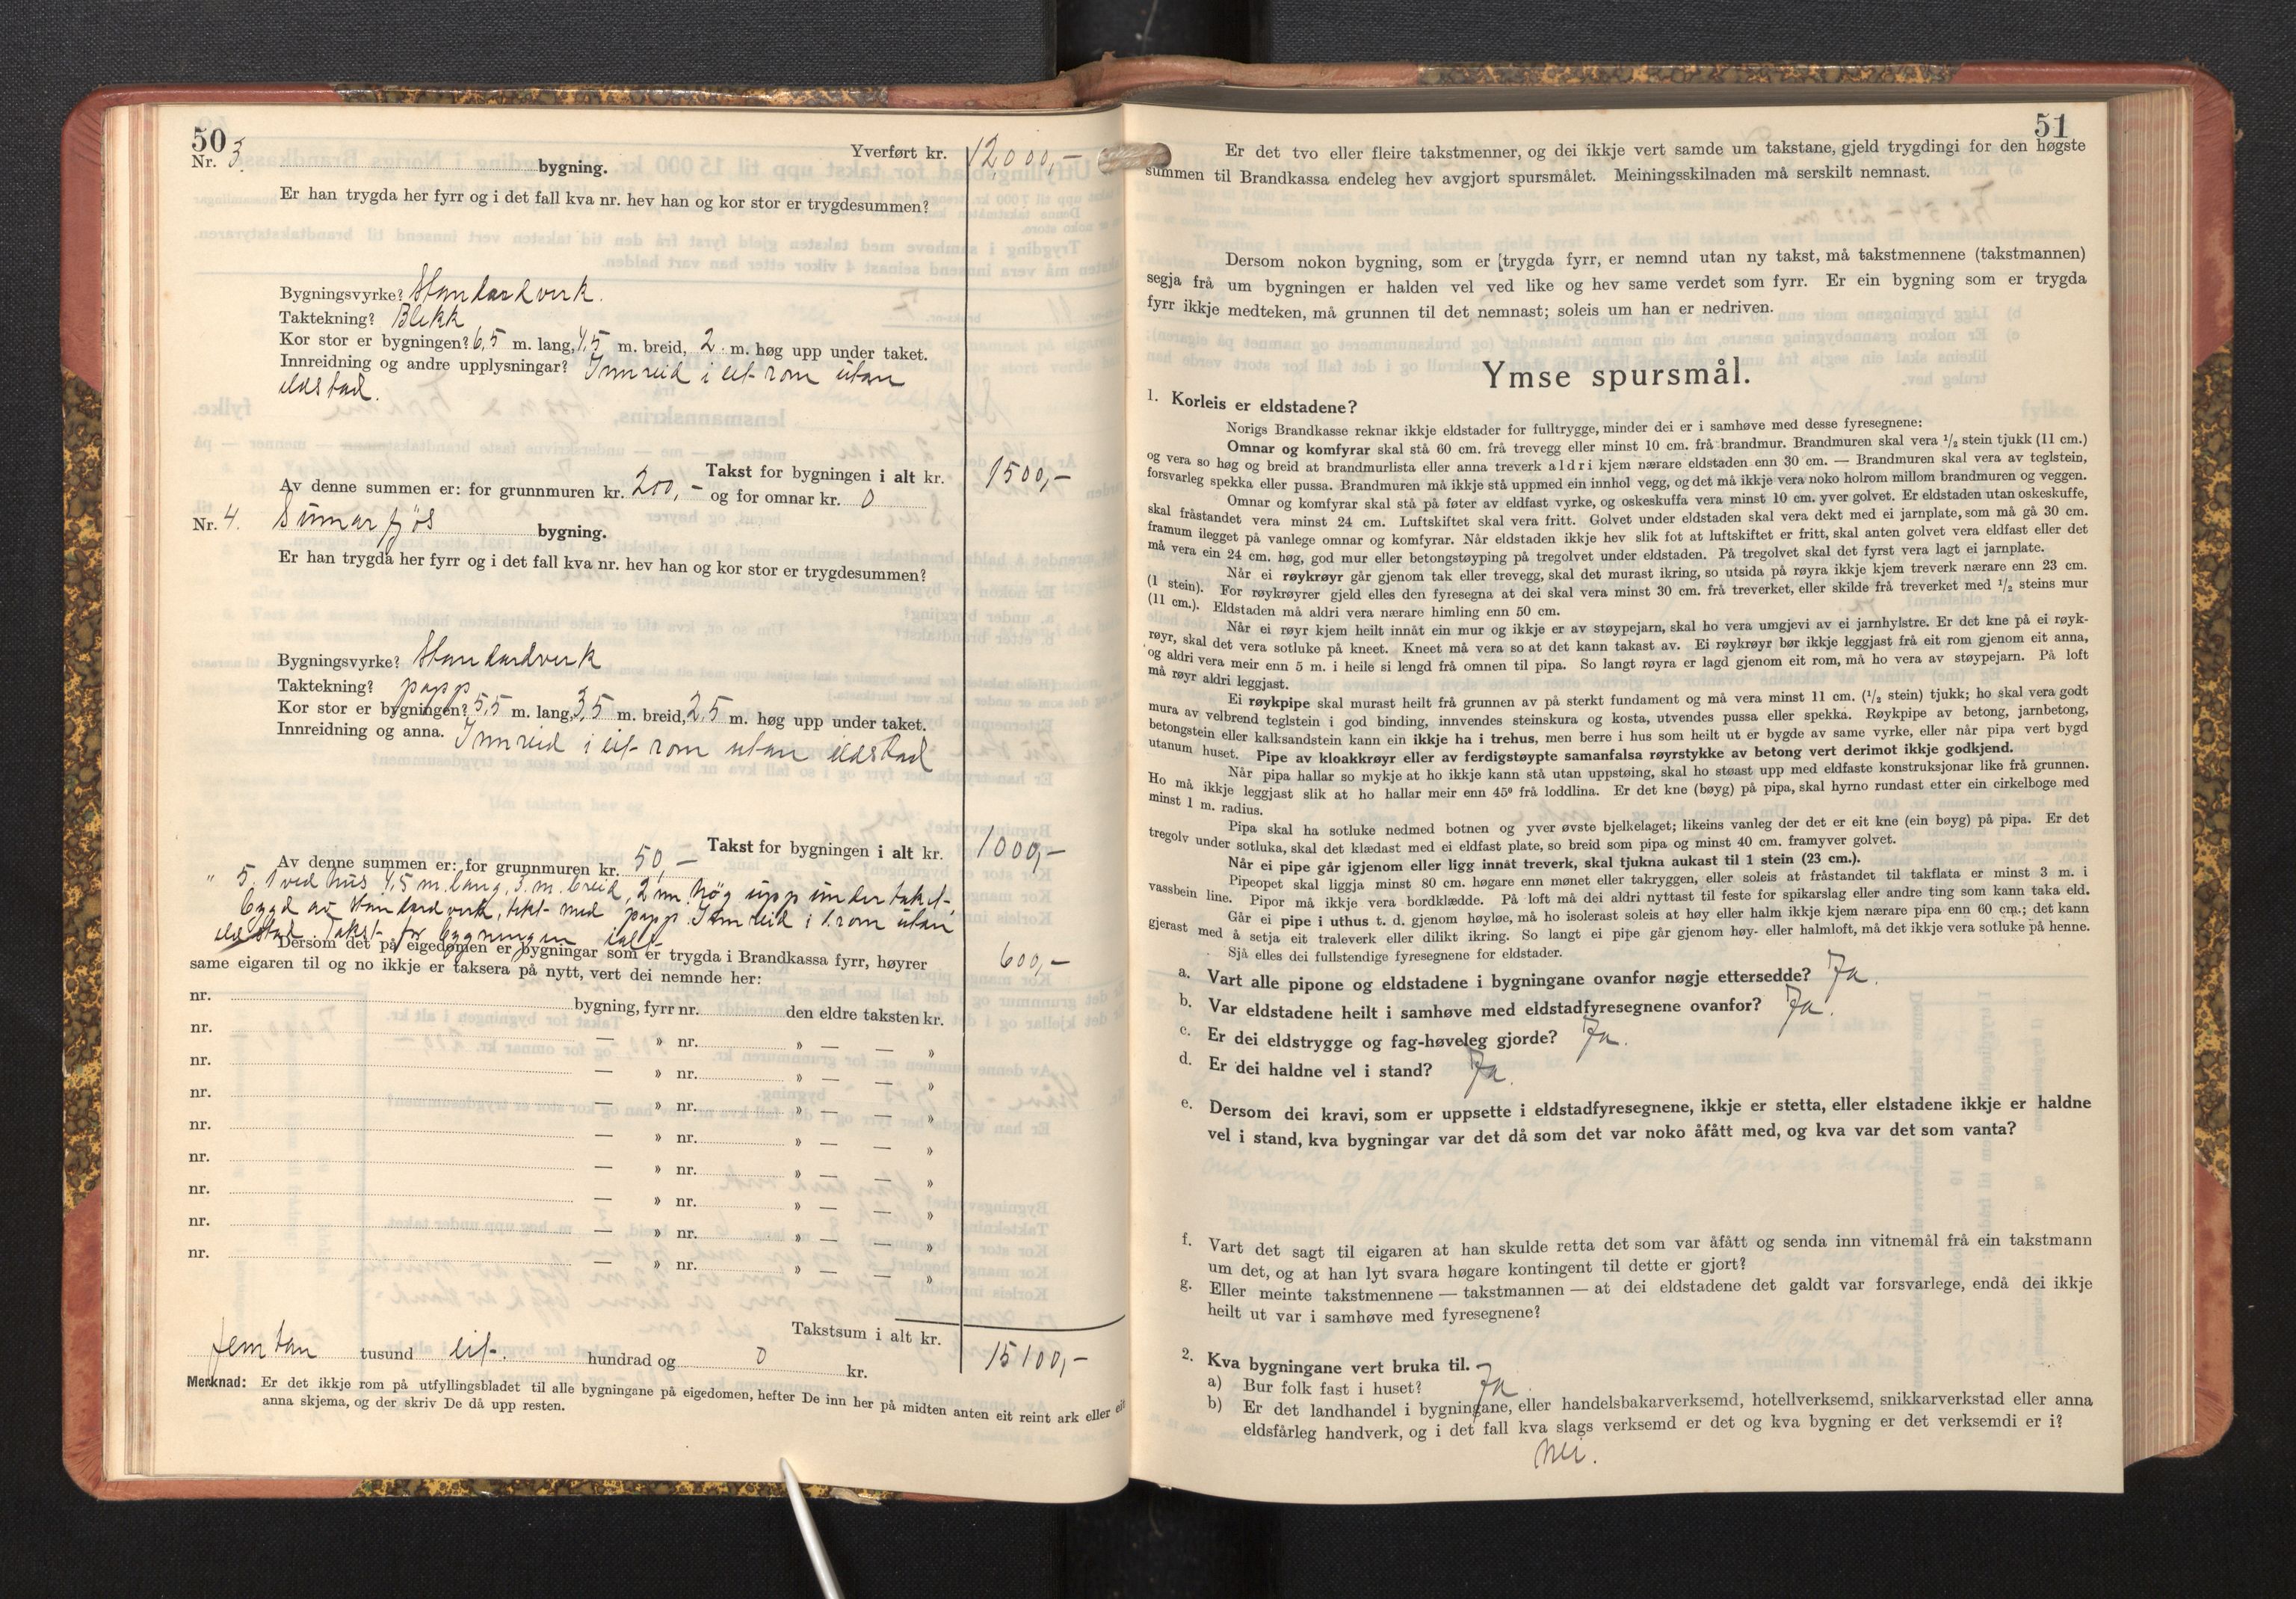 50
Nr. 3. bygning.
Yverført kr. 12,000,-
Er han trygda her fyrr og i det fall kva nr. hev han og kor stor er trygdesummen?
Bygningsvyrke? Standardverk.
Taktekning? Blekk
Kor stor er bygningen? 6,5 m. lang, 4,5 m. breid, 2 m. høg upp under taket.
Innreidning og andre upplysningar? Innreid i eit rom utan
eldstad.
Takst for bygningen i alt kr. 1500,-
Av denne summen er: for grunnmuren kr. 200,- og for omnar kr. 0
Nr. 4. Sumarfjös bygning.
Er han trygda her fyrr og i det fall kva nr. hev han og kor stor er trygdesummen?
Bygningsvyrke? Standardverk
Taktekning? papp
Kor stor er bygningen? 5,5 m. lang, 3,5 m. breid, 2,5 m. høg upp under taket.
Innreidning og anna. Innreid i eit rom utan eldstad
Takst for bygningen i alt kr. 1000,-
Av denne summen er: for grunnmuren kr. 50,-
" 5. 1 ved hus 4,5 m. lang, 3. m. breid, 2 m. høg upp under taket,
bygd av standardverk, tekt med papp. Innreid i 1. rom utan
eldstad. Takst for bygningen ialt 600,-
Dersom det på eigedomen er bygningar som er trygda i Brandkassa fyrr, høyrer
same eigaren til og no ikkje er taksera på nytt, vert dei nemnde her:
nr. bygning, fyrr nr. den eldre taksten kr.
nr. — » nr. » — — »
nr. — » nr. » — — »
nr. — » nr. » — — »
nr. — » nr. » — — »
nr. — » nr. » — — »
nr. — » nr. » — — »
nr. — » nr. » — — »
nr. — » nr. » — — »
Takstsum i alt kr. 15100,-
femtan tusund eit. hundrad og 0 kr.
Merknad: Er det ikkje rom på utfyllingsbladet til alle bygningane på eigedomen, hefter De inn her på midten anten eit reint ark eller eit
anna skjema, og der skriv De då upp resten.
51
Er det tvo eller fleire takstmenner, og dei ikkje vert samde um takstane, gjeld trygdingi for den høgste
summen til Brandkassa endeleg hev avgjort spursmålet. Meiningsskilnaden må serskilt nemnast.
Dersom nokon bygning, som er trygda fyrr, er nemnd utan ny takst, må takstmennene (takstmannen)
segja frå um bygningen er halden vel ved like og hev same verdet som fyrr. Er ein bygning som er trygda
fyrr ikkje medteken, må grunnen til det nemnast; soleis um han er nedriven.
Ymse spursmål.
1. Korleis er eldstadene?
Norigs Brandkasse reknar ikkje eldstader for fulltrygge, minder dei er i samhøve med desse fyresegnene:
Omnar og komfyrar skal stå 60 cm. frå trevegg eller minst 10 cm. frå brandmur. Brandmuren skal vera 1/2 stein tjukk (11 cm.)
og vera so høg og breid at brandmurlista eller anna treverk aldri kjem nærare eldstaden enn 30 cm. — Brandmuren skal vera av teglstein,
forsvarleg spekka eller pussa. Brandmuren må ikkje stå uppmed ein innhol vegg, og det må ikkje vera noko holrom millom brandmuren og veggen.
Omnar og komfyrar skal stå på føter av eldfast vyrke, og oskeskuffa vera minst 10 cm. yver golvet. Er eldstaden utan oskeskuffe,
skal fråstandet vera minst 24 cm. Luftskiftet skal vera fritt. Golvet under eldstaden skal vera dekt med ei jarnplate, som må gå 30 cm.
framum ilegget på vanlege omnar og komfyrar. Når eldstaden ikkje hev slik fot at luftskiftet er fritt, skal anten golvet vera eldfast eller det
må vera ein 24 cm. høg, god mur eller betongstøyping på tregolvet under eldstaden. På tregolvet skal det fyrst vera lagt ei jarnplate.
Når ei røykrøyr går gjenom tak eller trevegg, skal det murast ikring, so utsida på røyra ikkje kjem treverk nærare enn 23 cm.
(1 stein). For røykrøyrer gjeld elles den fyresegna at dei skal vera minst 30 cm. frå treverket, eller skilde frå treverket med 1/2 steins mur
(11 cm.). Eldstaden må aldri vera nærare himling enn 50 cm.
Når ei røyr kjem heilt innåt ein mur og ikkje er av støypejarn, skal ho vera umgjevi av ei jarnhylstre. Er det kne på ei røyk-
røyr, skal det vera sotluke på kneet. Kneet må vera so at det kann takast av. Ei røykrøyr bør ikkje leggjast frå eit rom gjenom eit anna,
og aldri vera meir enn 5 m. i heile si lengd frå omnen til pipa. So langt røyra er lagd gjenom eit rom, må ho vera av støypejarn. På loft
må røyr aldri leggjast.
Ei røykpipe skal murast heilt frå grunnen av på sterkt fundament og må vera minst 11 cm. (1/2 stein) tjukk; ho skal vera godt
mura av velbrend teglstein i god binding, innvendes steinskura og kosta, utvendes pussa eller spekka. Røykpipe av betong, jarnbetong,
betongstein eller kalksandstein kann ein ikkje ha i trehus, men berre i hus som heilt ut er bygde av same vyrke, eller når pipa vert bygd
utanum huset. Pipe av kloakkrøyr eller av ferdigstøypte samanfalsa røyrstykke av betong vert derimot ikkje godkjend.
Når pipa hallar so mykje at ho ikkje kann stå utan uppstøing, skal ho støast upp med eldfaste konstruksjonar like frå grunnen.
Ho må ikkje leggjast slik at ho hallar meir enn 45° frå loddlina. Er det kne (bøyg) på pipa, skal hyrno rundast etter ein cirkelboge med
minst 1 m. radius.
Pipa skal ha sotluke nedmed botnen og yver øvste bjelkelaget; likeins vanleg der det er eit kne (ein bøyg) på pipa. Er det
tregolv under sotluka, skal det klædast med ei eldfast plate, so breid som pipa og minst 40 cm. framyver golvet.
Når ei pipe går igjenom eller ligg innåt treverk, skal tjukna aukast til 1 stein (23 cm.).
Pipeopet skal liggja minst 80 cm. høgare enn mønet eller takryggen, eller soleis at fråstandet til takflata er minst 3 m. i
vassbein line. Pipor må ikkje vera bordklædde. På loft må dei aldri nyttast til feste for spikarslag eller andre ting som kann taka eld.
Går ei pipe i uthus t. d. gjenom høyløe, må ho isolerast soleis at høy eller halm ikkje kjem nærare pipa enn 60 cm.; det kann
gjerast med å setja eit traleverk eller dilikt ikring. So langt ei pipe går gjenom høy- eller halmloft, må det ikkje vera sotluke på henne.
Sjå elles dei fullstendige fyresegnene for eldstader.
a. Vart alle pipone og eldstadene i bygningane ovanfor nøgje ettersedde? Ja.
b. Var eldstadene heilt i samhøve med eldstadfyresegnene ovanfor? Ja.
c. Er dei eldstrygge og fag-høveleg gjorde? Ja.
d. Er dei haldne vel i stand? Ja.
e. Dersom dei kravi, som er uppsette i eldstadfyresegnene, ikkje er stetta, eller elstadene ikkje er haldne
vel i stand, kva bygningar var det då som det var noko åfått med, og kva var det som vanta?
f. Vart det sagt til eigaren at han skulde retta det som var åfått og senda inn vitnemål frå ein takstmann
um det, og at han lyt svara høgare kontingent til dette er gjort?
g. Eller meinte takstmennene — takstmannen — at dei eldstadene det galdt var forsvarlege, endå dei ikkje
heilt ut var i samhøve med fyresegnene?
2. Kva bygningane vert bruka til.
a) Bur folk fast i huset? Ja.
b) Er det landhandel i bygningane, eller handelsbakarverksemd, hotellverksemd, snikkarverkstad eller anna
eldsfårleg handverk, og i det fall kva slags verksemd er det og kva bygning er det verksemdi er i?
Nei.